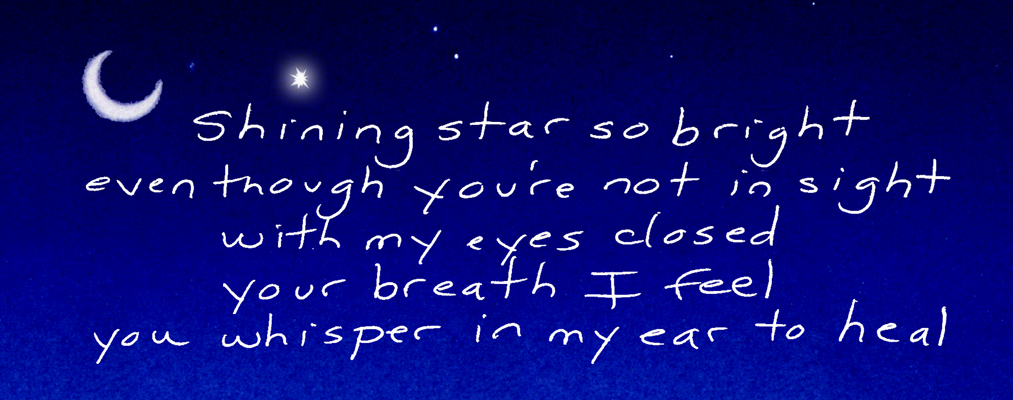 Shining star so bright
even though you're not in sight
with my eyes closed
your breath I feel
you whisper in my ear to heal